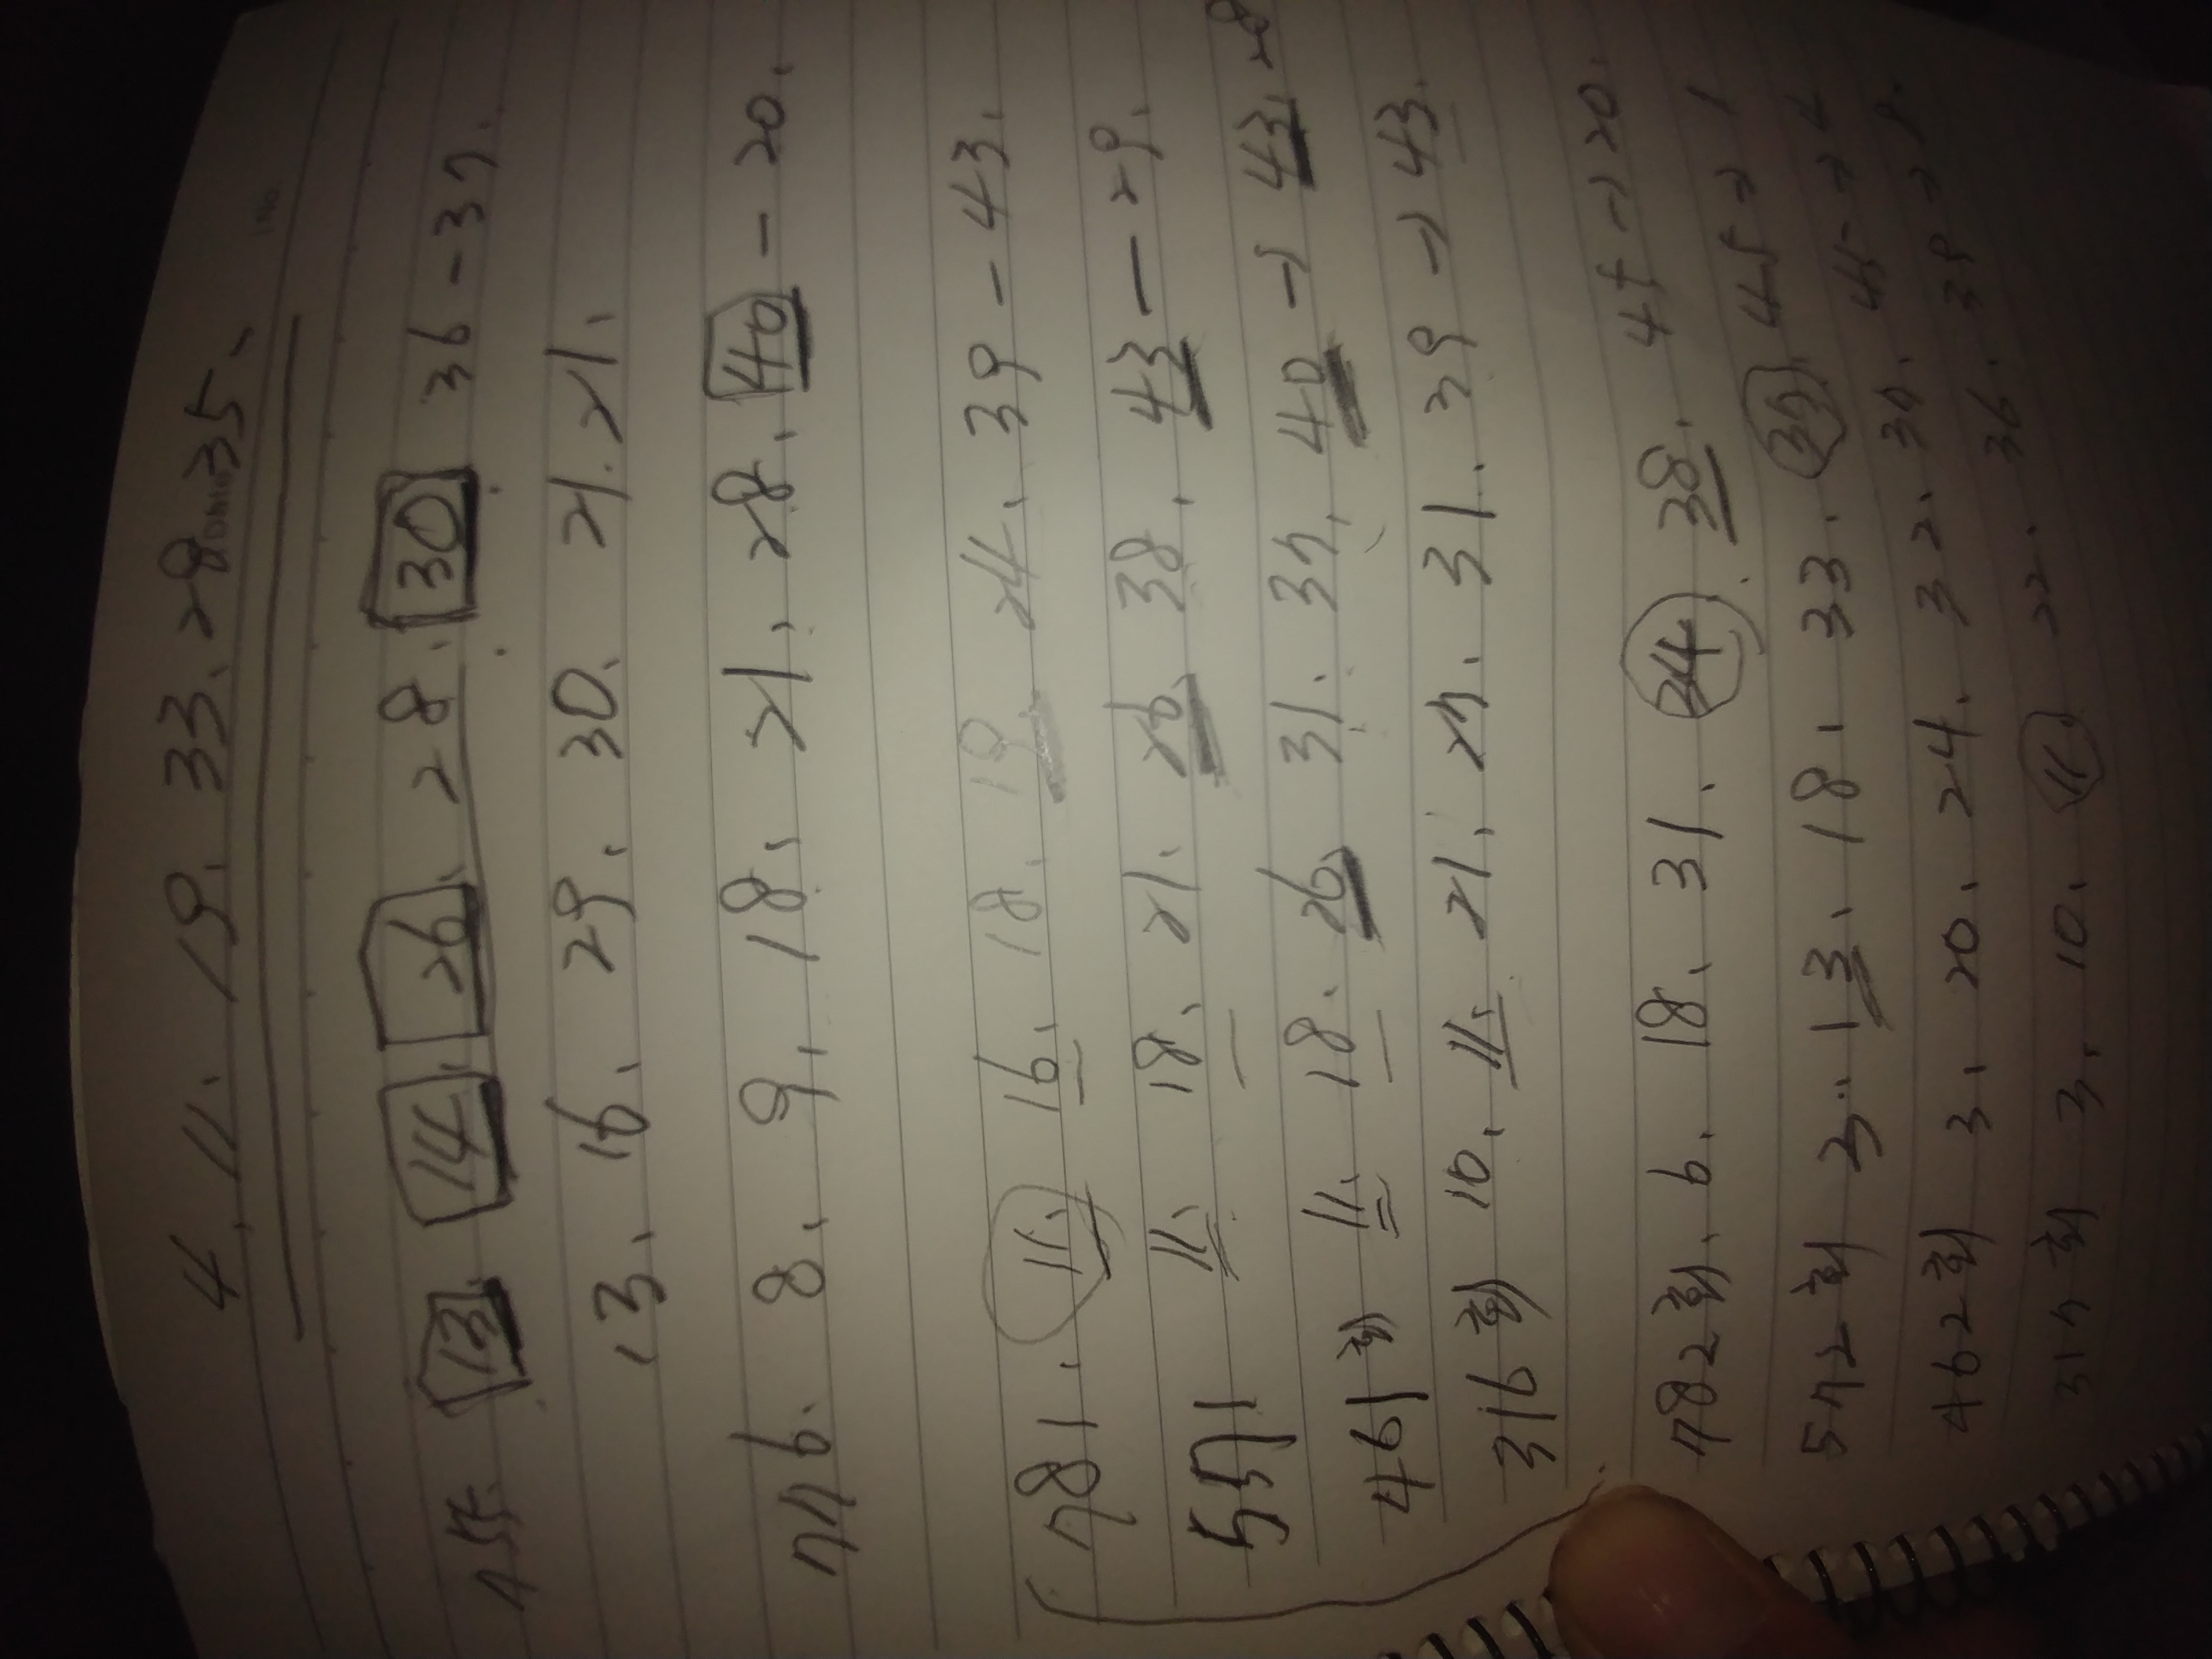 4. 11. 19. 33. 28 35.
13. 14. 26. 28. 30 36 - 37.
13. 16. 29. 30. 21. 21.
776. 8. 9. 18. 21. 28. 40 - 20.
781. 11. 16. 18. 19. 24. 39 - 43.
11. 18. 21. 26. 38. 43 - 29.
461회 11. 18. 26. 31. 37. 40 → 43. 28
316회 10. 11. 21. 27. 31. 39 → 43.
782회. 6. 18. 31. 34. 38. 45 → 20.
572회 3. 13. 18. 33. 37. 45 → 1
462회 3. 20. 24. 32. 37. 45 → 4
317회 3. 10. 11. 22. 36. 39 → 8.